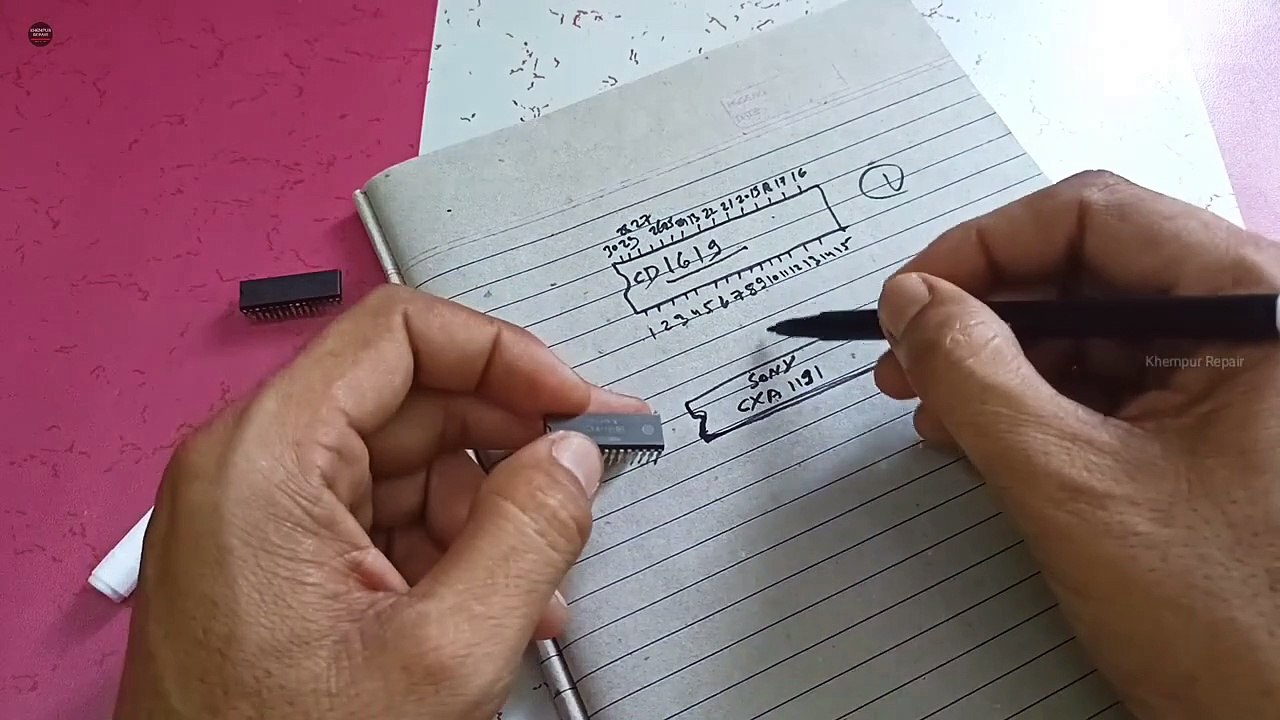 KHEMPUR
REPAIR
30 29 28 27 26 25 24 23 22 21 20 19 18 17 16
1
CD1619
1 2 3 4 5 6 7 8 9 10 11 12 13 14 15
Khempur Repair
SONY
CXA 1191